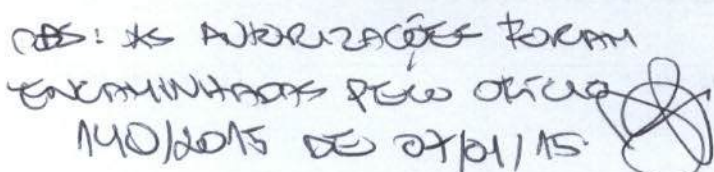 OBS: AS AUTORIZAÇÕES FORAM
ENCAMINHADAS PELO OFÍCIO
140/2015 DE 07/01/15.